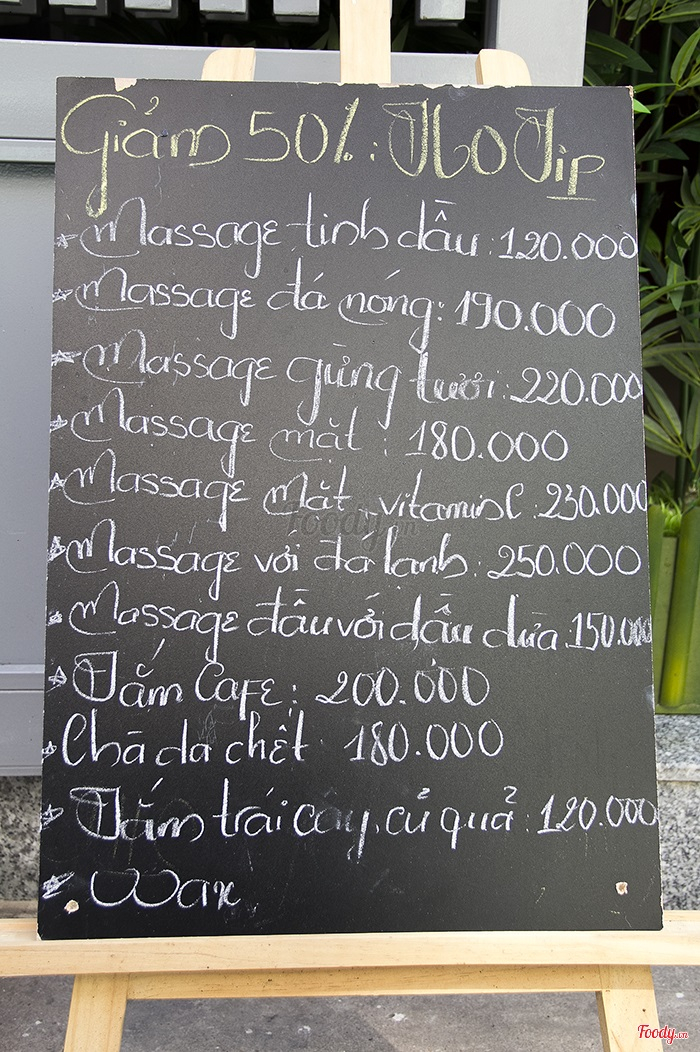 Giảm 50%: No Tip
* Massage tinh dầu: 120.000
* Massage đá nóng: 190.000
* Massage gừng tươi: 220.000
* Massage mặt: 180.000
* Massage mặt vitamin C: 230.000
* Massage với đa lanh: 250.000
* Massage đầu với dầu dừa 150.000
* Tắm Cafe: 200.000
* Chà da chết 180.000
* Tắm trái cây, củ quả: 120.000
* Wax
Foody.vn
Foody.vn